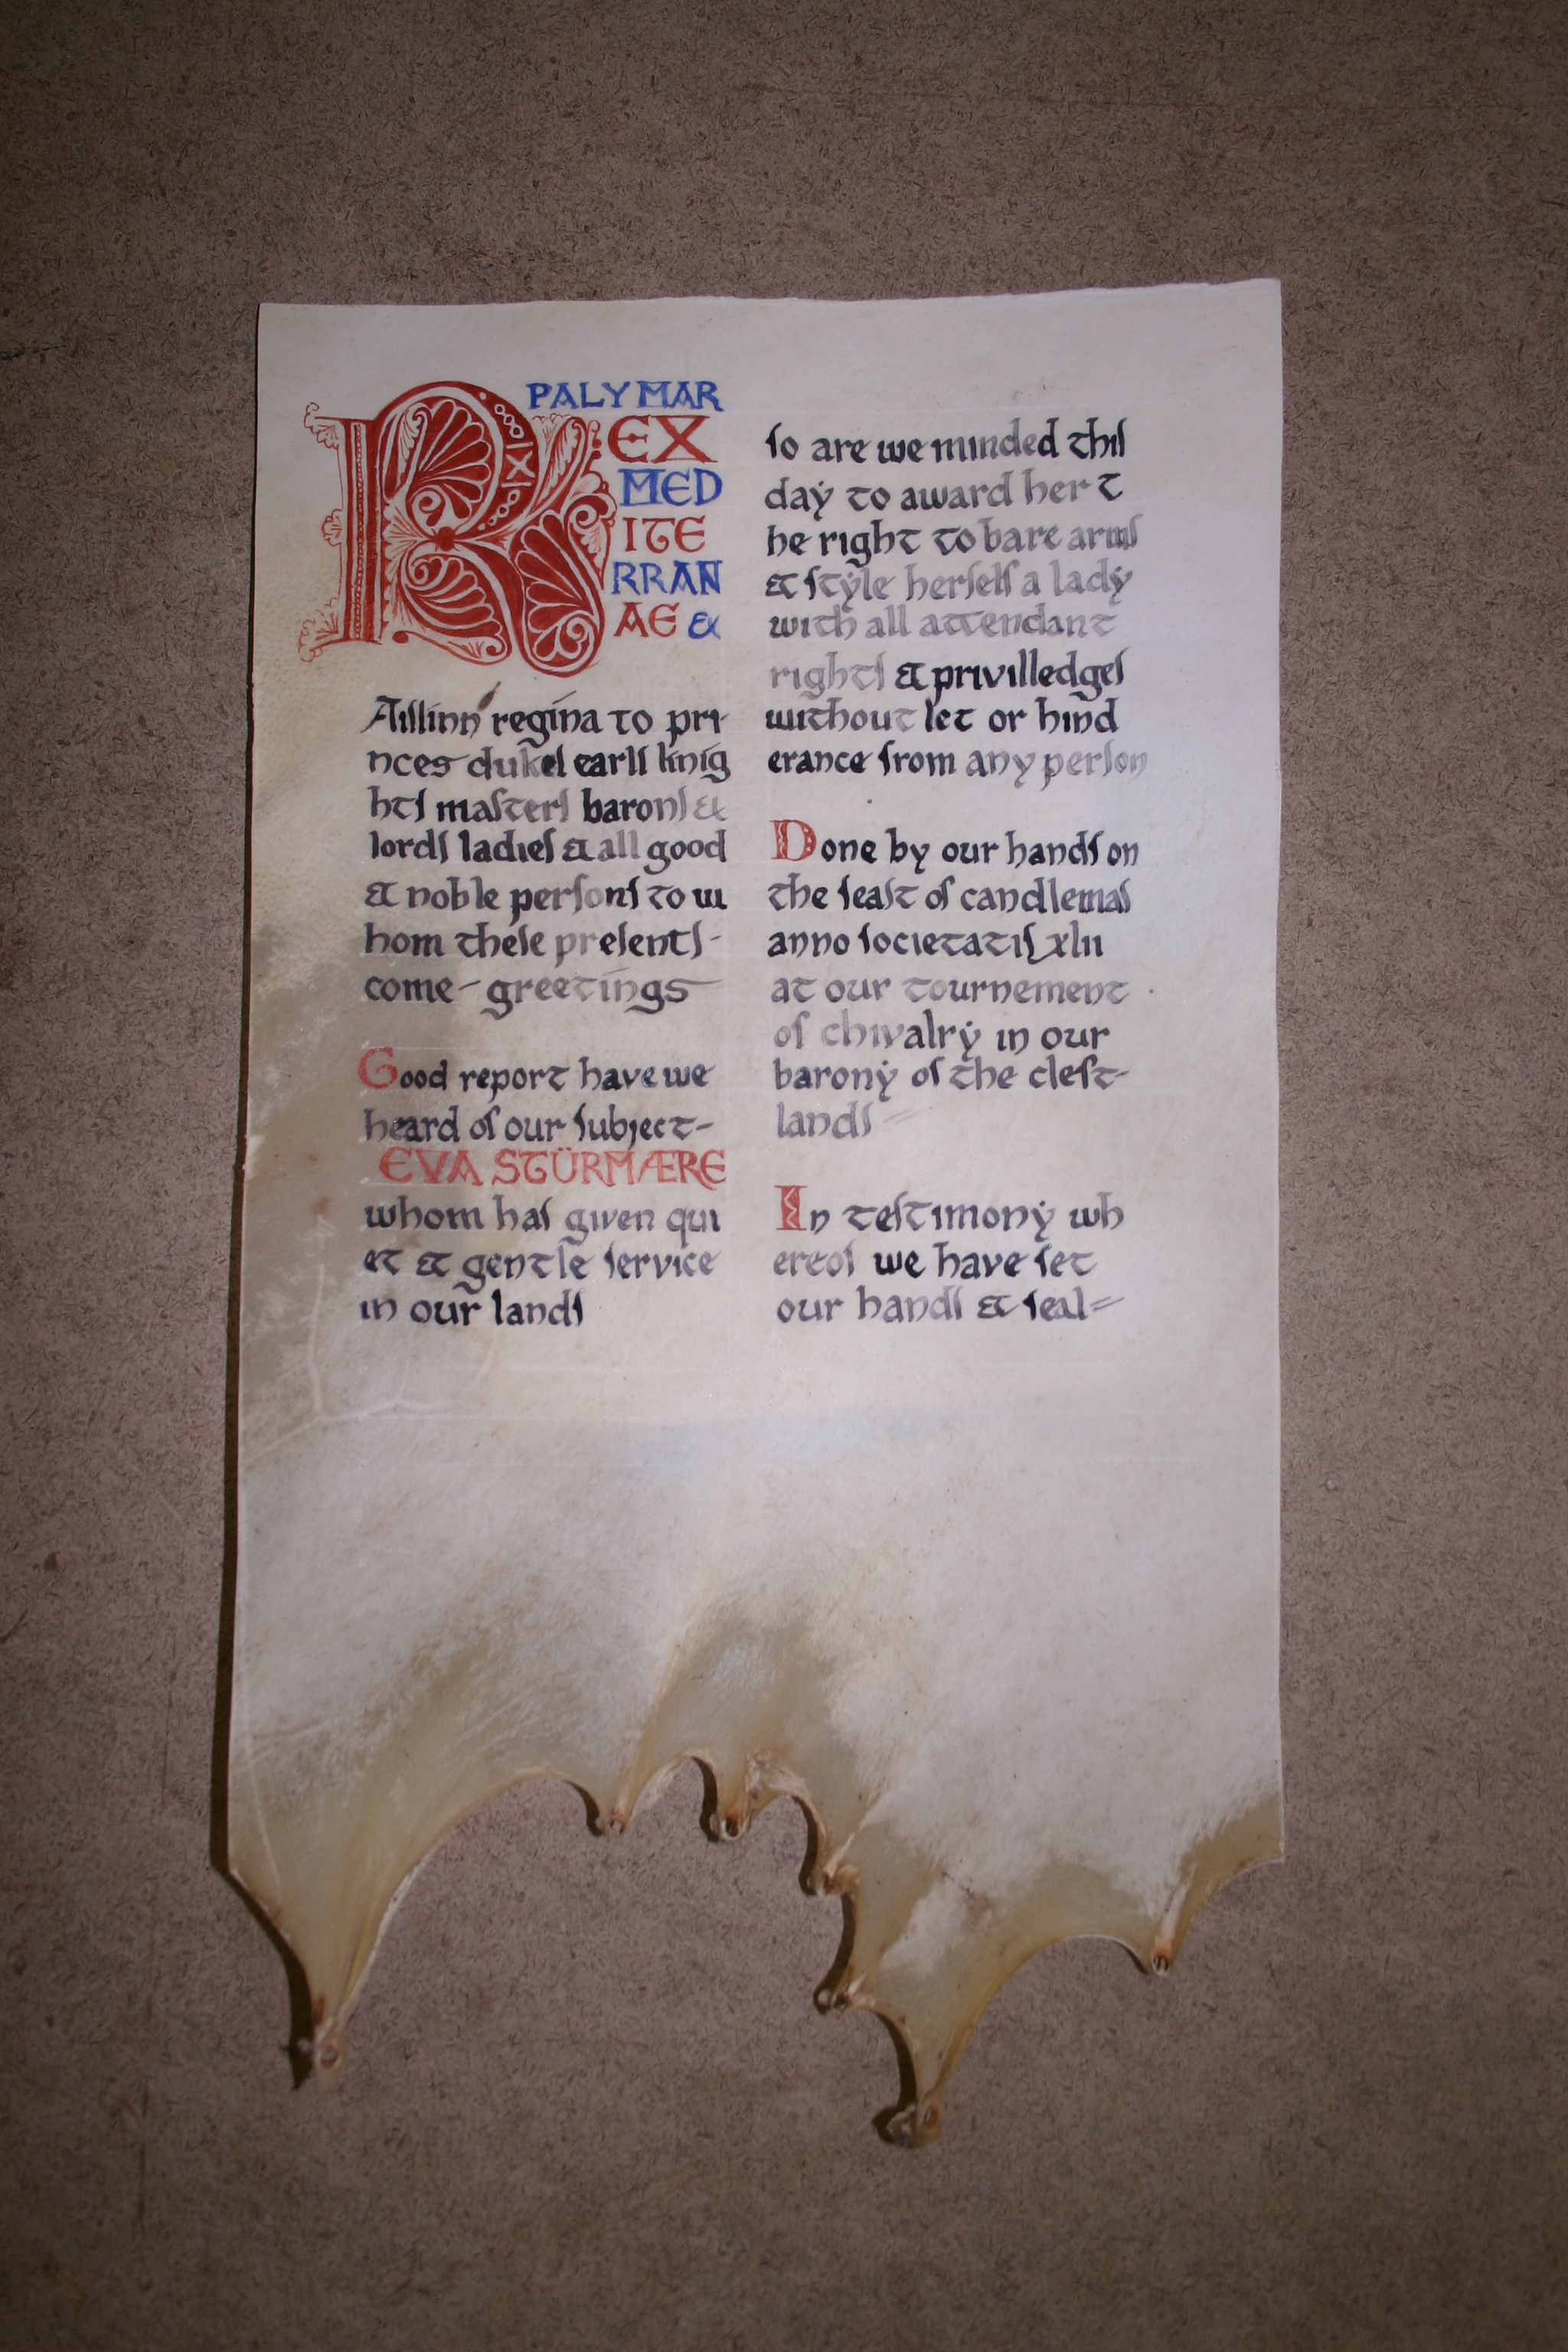 PALYMAR
REX
MED
ITE
RRAN
AE &
Aislinn regina to pri-
nces dukes earls knig
hts masters barons &
lords ladies & all good
& noble persons to w
hom these presents-
come- greetings
Good report have we
heard of our subject-
EVA STÜRMÆRE
whom has given qui
et & gentle service
in our lands
so are we minded this
daẏ to award her t
he right to bare arms
& stẏle herself a ladẏ
with all attendant
rights & privilledges
without let or hind
erance from any person
Done by our hands on
the feast of candlemas
anno societatis xlii
at our tournement
of chivalrẏ in our
baronẏ of the cleft-
lands=
In testimonẏ wh
ereof we have set
our hands & seal=